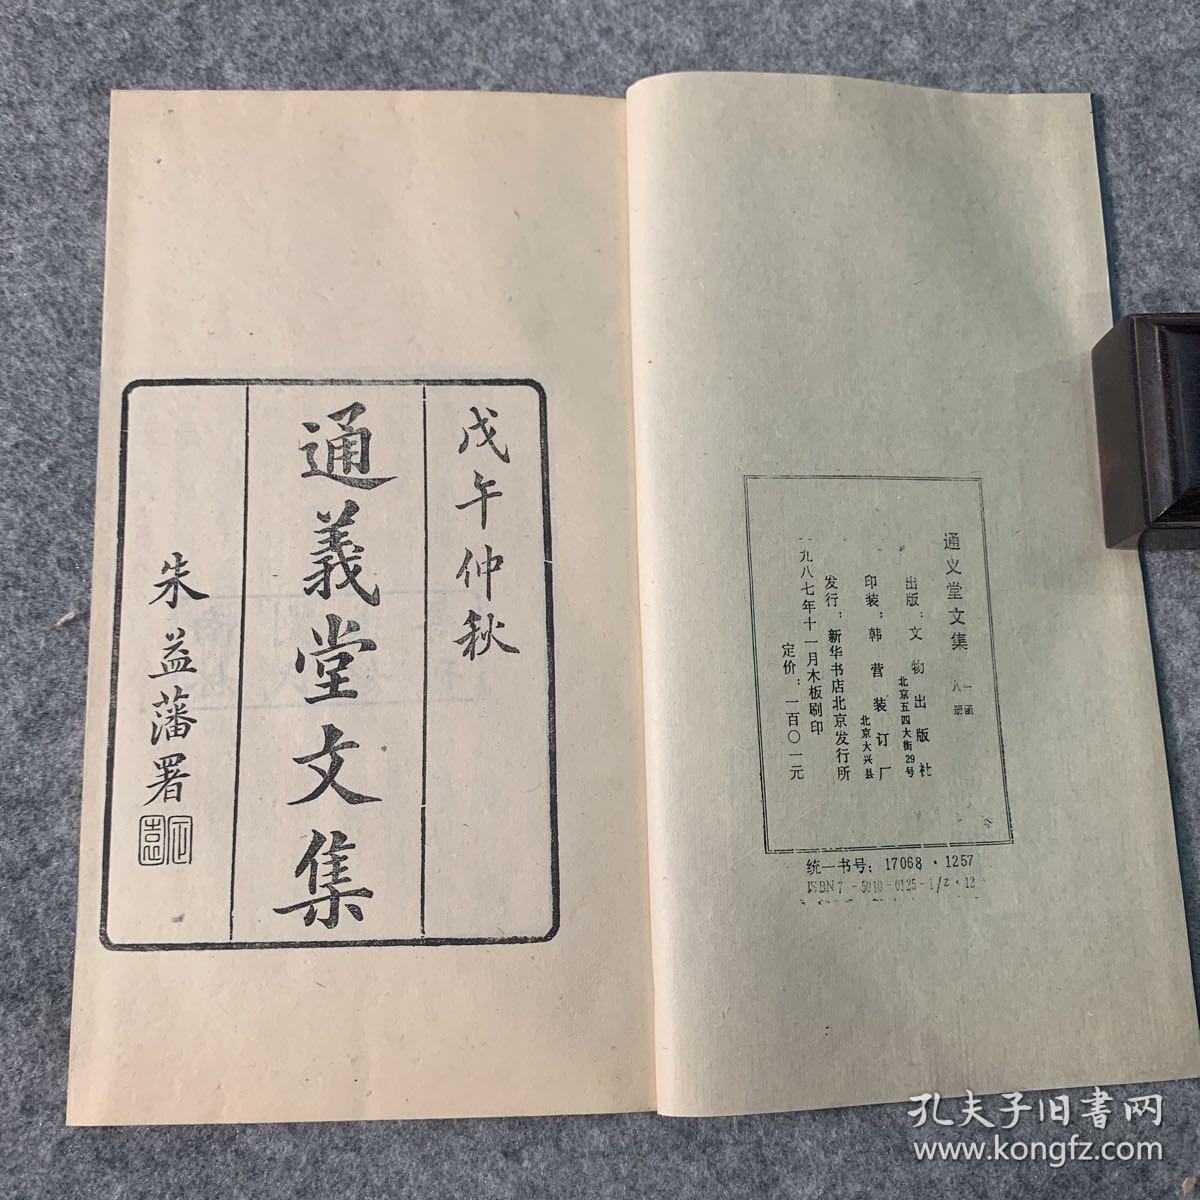 戊午仲秋
通義堂文集
朱益藩署
通义堂文集
一函
八册
出版：文物出版社
北京五四大街29号
印装：韩营装订厂
北京大兴县
发行：新华书店北京发行所
一九八七年十一月木板刷印
定价：一百〇一元
统一书号：17068·1257
ISBN7-5010-0125-1/z·12
孔夫子旧書网
www.kongfz.com